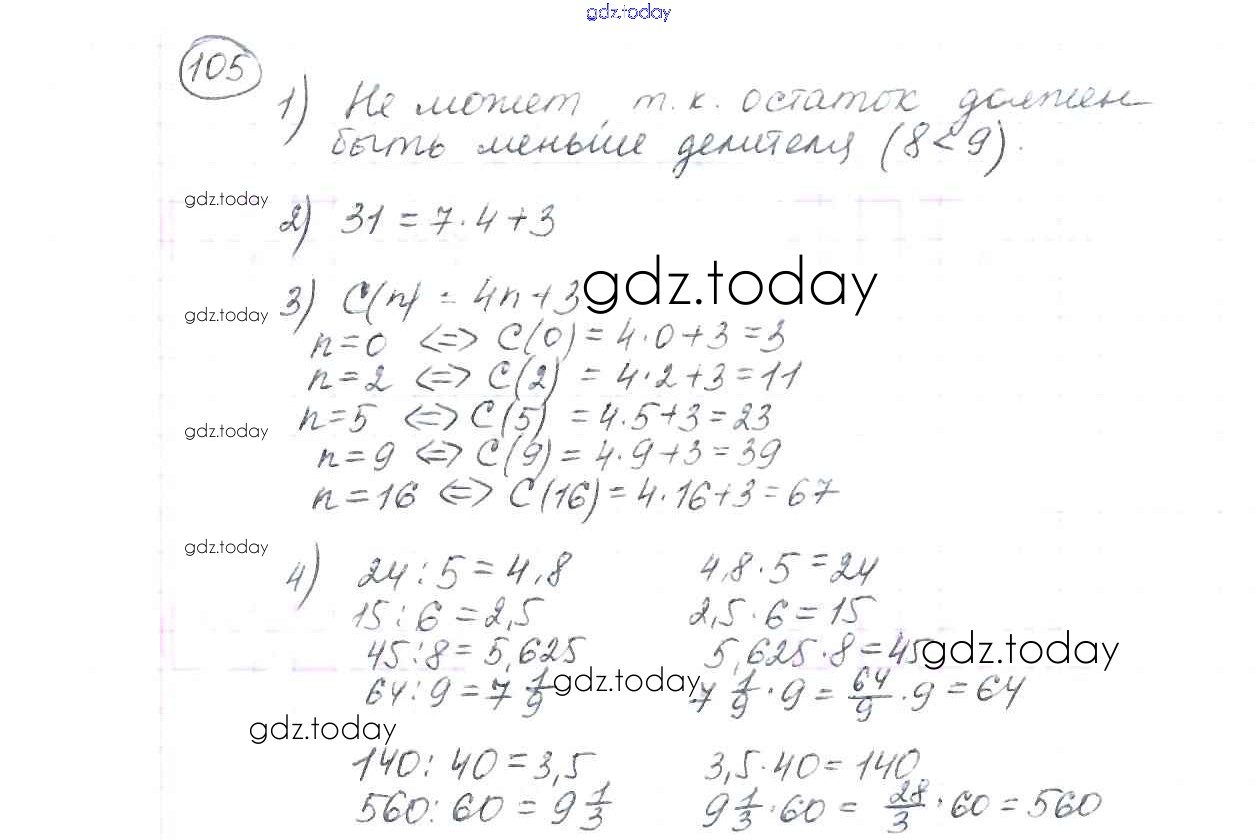 gdz.today
105
1) Не может, т.к. остаток должен
быть меньше делителя (8<9).
gdz.today
2) 31 = 7·4+3
gdz.today
3) C(n) = 4n+3
gdz.today
n=0 <=> C(0) = 4·0+3=3
n=2 <=> C(2) = 4·2+3=11
gdz.today
n=5 <=> C(5) = 4·5+3=23
n=9 <=> C(9) = 4·9+3=39
n=16 <=> C(16) = 4·16+3=67
gdz.today
4) 24:5=4,8 4,8·5=24
15:6=2,5 2,5·6=15
45:8=5,625 5,625·8=45
gdz.today
64:9=7 1/9 7 1/9·9=64/9·9=64
gdz.today
gdz.today
140:40=3,5 3,5·40=140
560:60=9 1/3 9 1/3·60=28/3·60=560